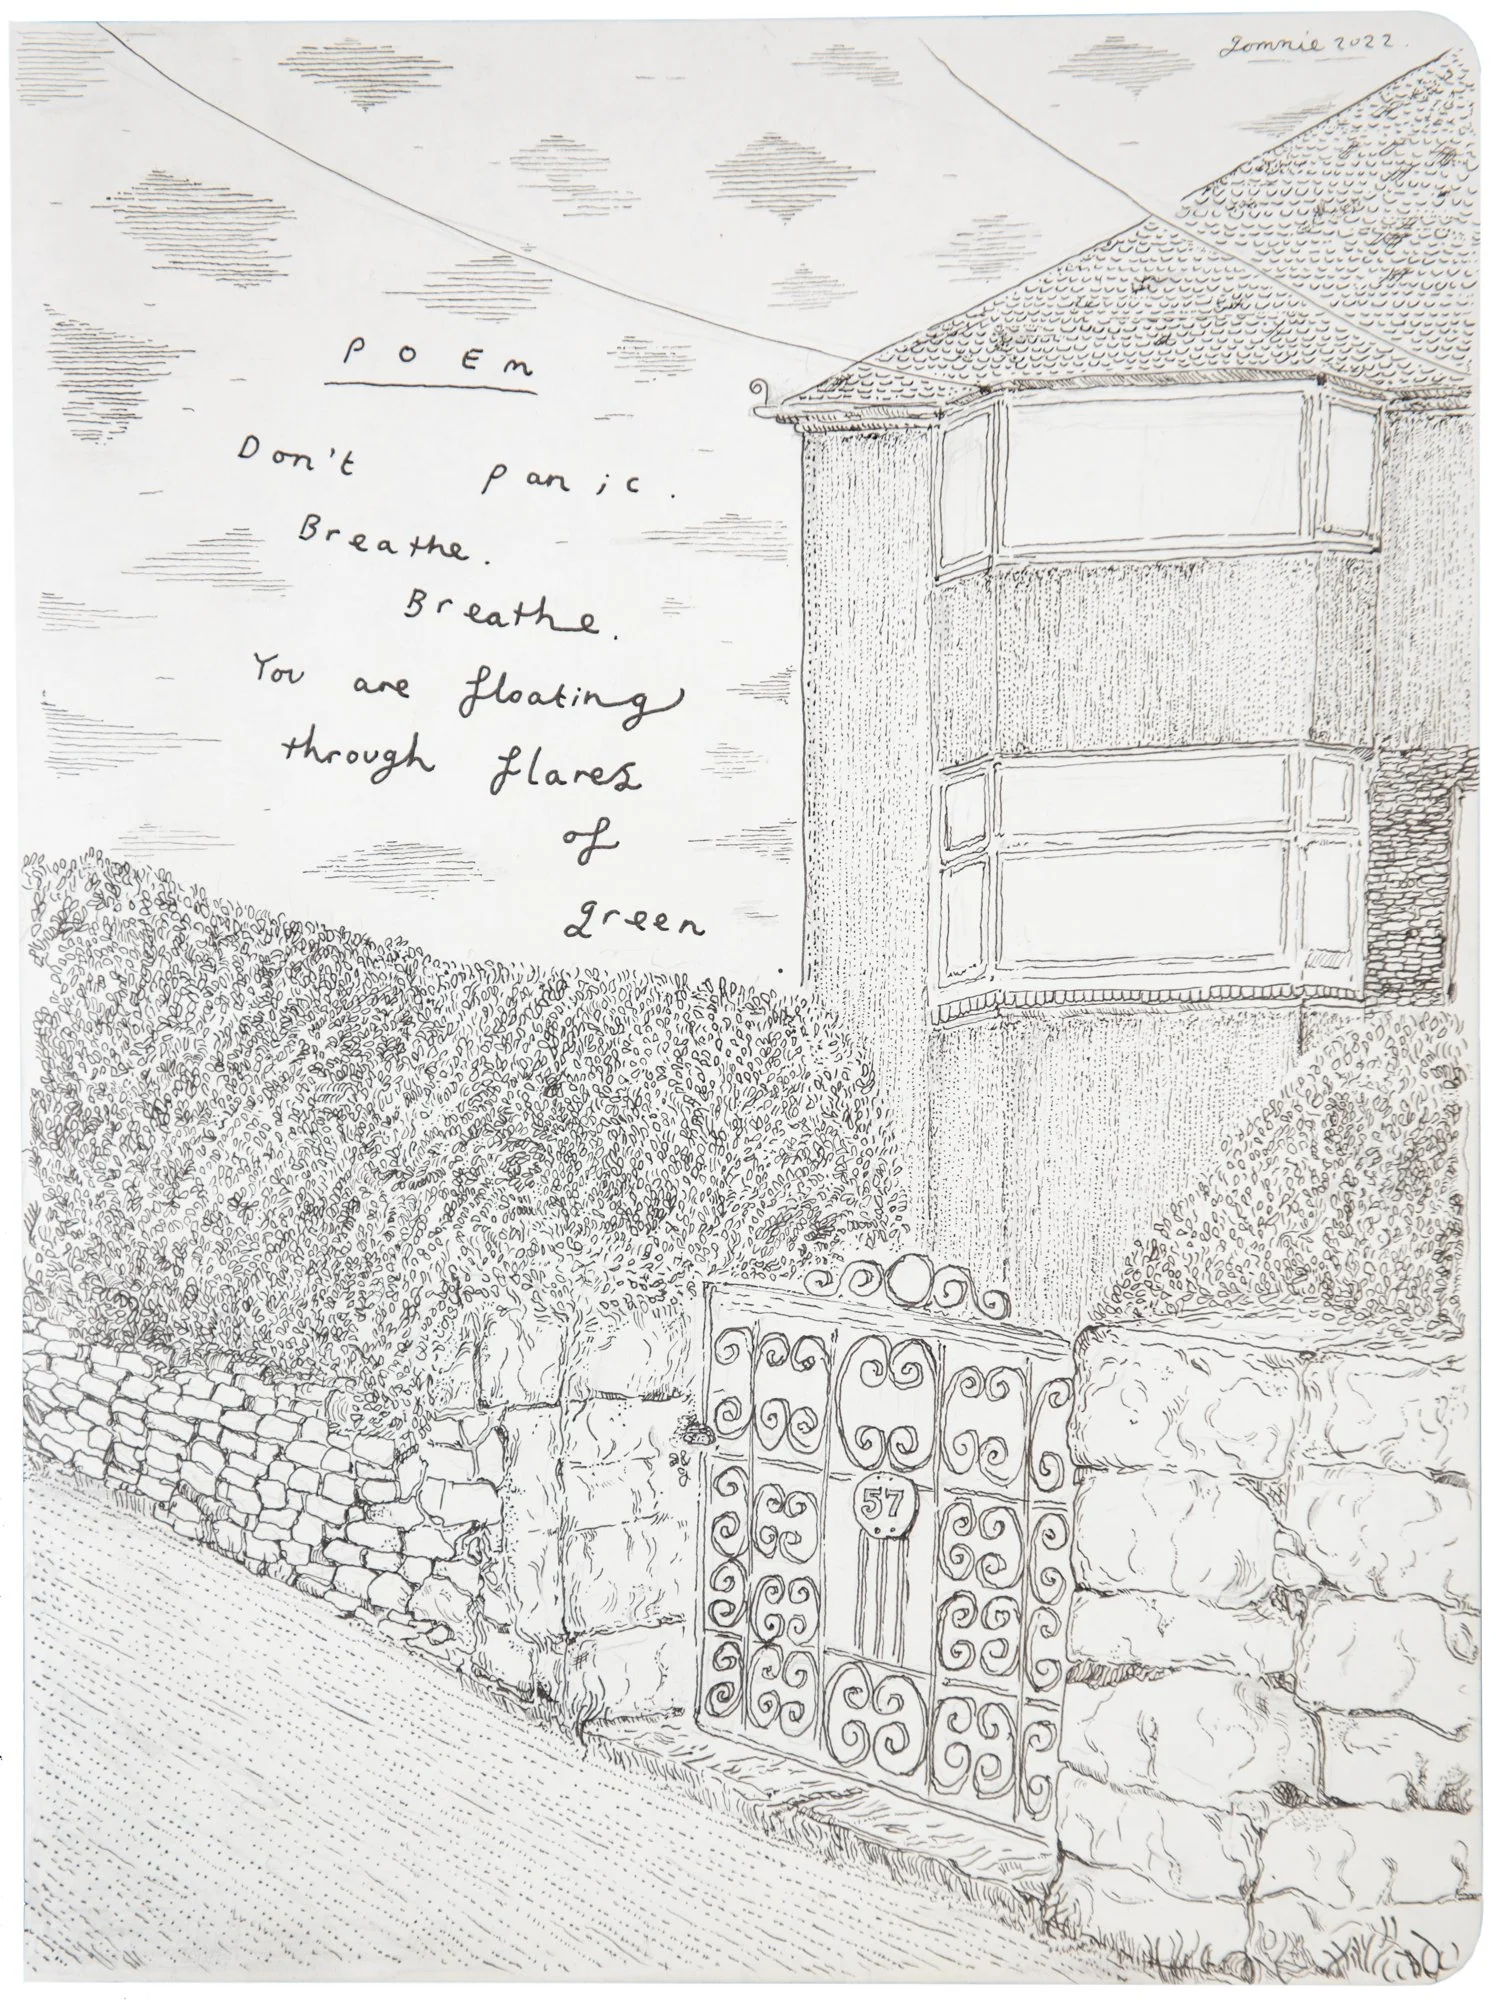 Jomnie 2022.
POEM
Don't panic.
Breathe.
Breathe.
You are floating
through flares
of
green
57